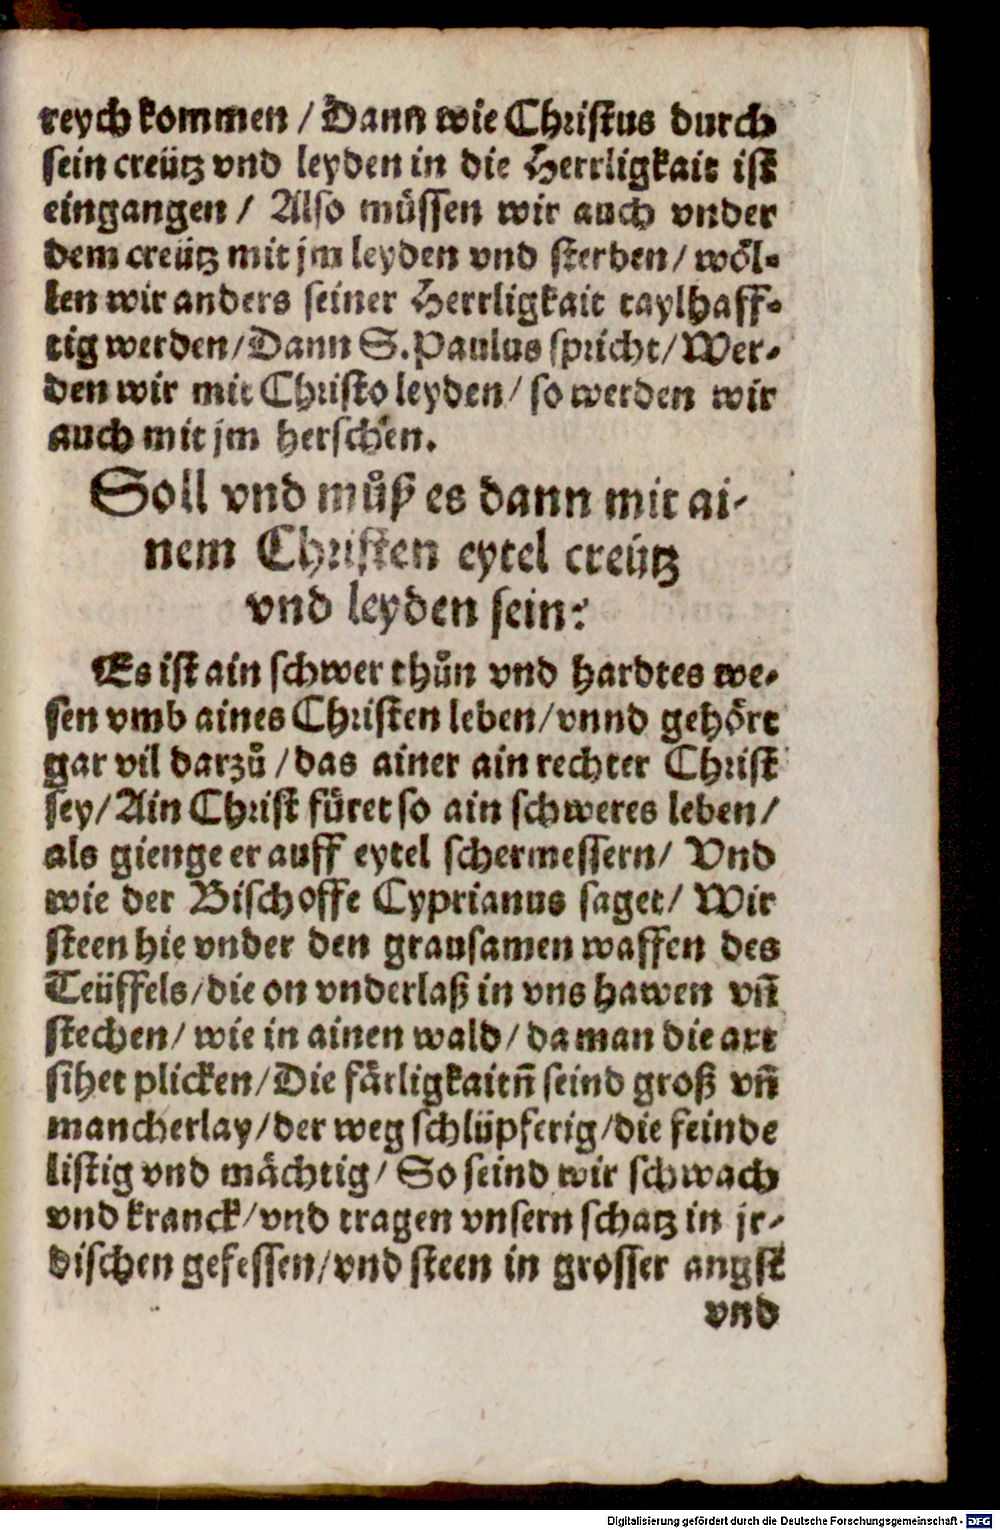 reych kommen / Dann wie Christus durch
sein creütz vnd leyden in die Herrligkait ist
eingangen / Also müssen wir auch vnder
dem creütz mit jm leyden vnd sterben / wöl-
len wir anders seiner Herrligkait taylhaff-
tig werden / Dann S. Paulus spricht / Wer-
den wir mit Christo leyden / so werden wir
auch mit jm herschen.
Soll vnd můß es dann mit ai-
nem Christen eytel creütz
vnd leyden sein?
Es ist ain schwer thůn vnd hardtes we-
sen vmb aines Christen leben / vnnd gehört
gar vil darzů / das ainer ain rechter Christ
sey / Ain Christ füret so ain schweres leben /
als gienge er auff eytel schermessern / Vnd
wie der Bischoffe Cyprianus saget / Wir
steen hie vnder den grausamen waffen des
Teüffels / die on vnderlaß in vns hawen vñ
stechen / wie in ainen wald / da man die axt
sihet plicken / Die färligkaitñ seind groß vñ
mancherlay / der weg schlüpferig / die feinde
listig vnd mächtig / So seind wir schwach
vnd kranck / vnd tragen vnsern schatz in jr-
dischen gefessen / vnd steen in grosser angst
vnd
Digitalisierung gefördert durch die Deutsche Forschungsgemeinschaft - DFG